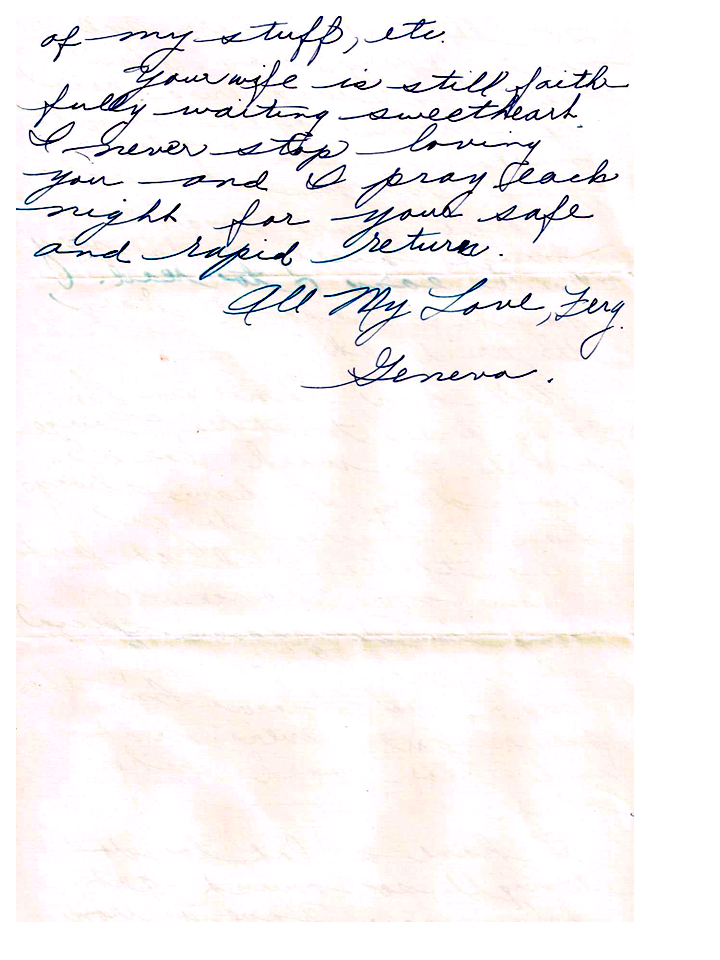 of my stuff, etc.
Your wife is still faith
fully waiting sweetheart.
I never stop loving
you and I pray each
night for your safe
and rapid return.
All My Love, Ferg.
Geneva.